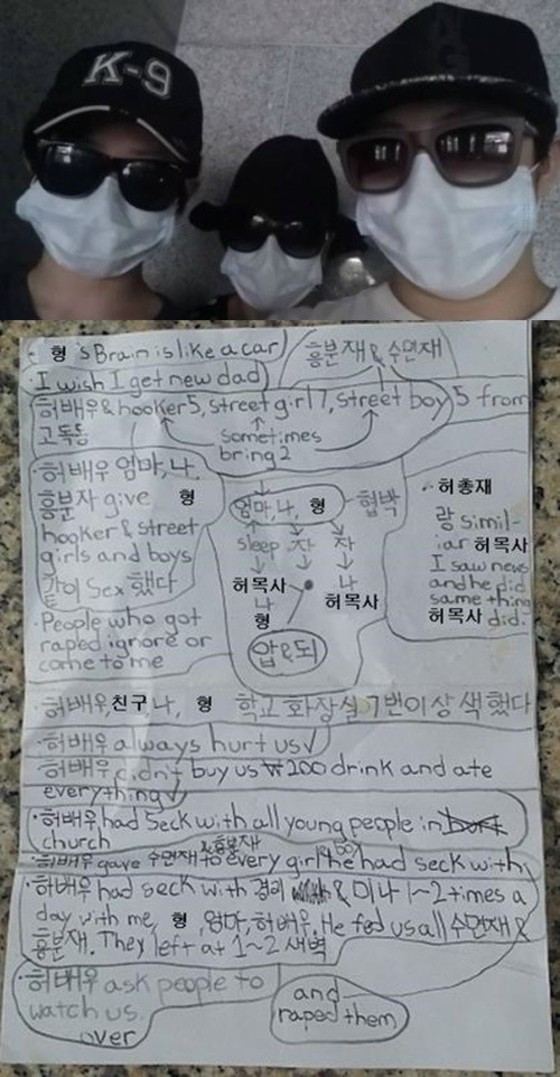 K-9
형's Brain is like a car
흥분재 & 수면재
I wish I get new dad
허배우 & hooker 5, street girl 7, street boy 5 from
고독동
sometimes
bring 2
허배우 엄마, 나,
흥분자 give 형
hooker & street
girls and boys
같이 sex 했다
People who got
raped ignore or
come to me
엄마, 나, 형 협박
sleep 자 자
허목사 나
나 허목사
형
압&되
허총재
랑 simil-
iar 허목사
I saw news
and he did
same thing
허목사 did.
허배우, 친구, 나, 형 학교 화장실 7번이상 색했다
허배우 always hurt us
허배우 didn't buy us ₩200 drink and ate
everything
허배우 had Seck with all young people in
church
& 흥분재
허배우 gave 수면재 to every girl he had seck with
허배우 had seck with 경리 & 미나 1~2 times a
day with me, 형, 엄마, 허배우. He fed us all 수면재 &
흥분재. They left at 1~2 새벽
허배우 ask people to
watch us.
over
and
raped them